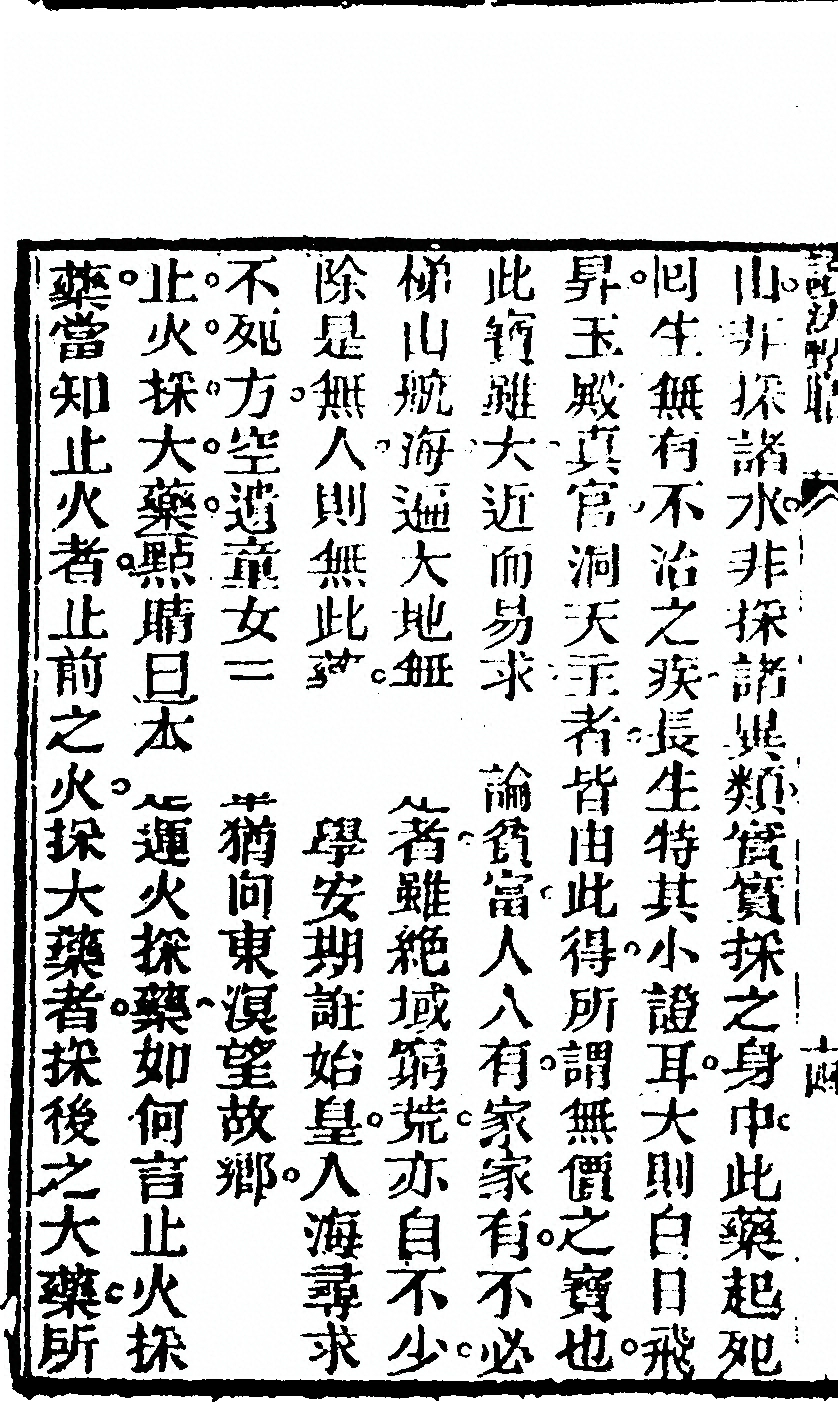 山非採諸水非採諸異類實實採之身中此藥起死
囘生無有不治之疾長生特其小證耳大則白日飛
昇玉殿真官洞天主者皆由此得所謂無價之寶也
此寶雖大近而易求論貧富人人有家家有不必
梯山航海遍大地無者雖絕域窮荒亦自不少
除是無人則無此藥學安期誑始皇人海尋求
不死方空遺童女二犟猶向東溟望故鄉
止火採大藥點睛曰本運火採藥如何言止火採
藥當知止火者止前之火採大藥者採後之大藥所
十四